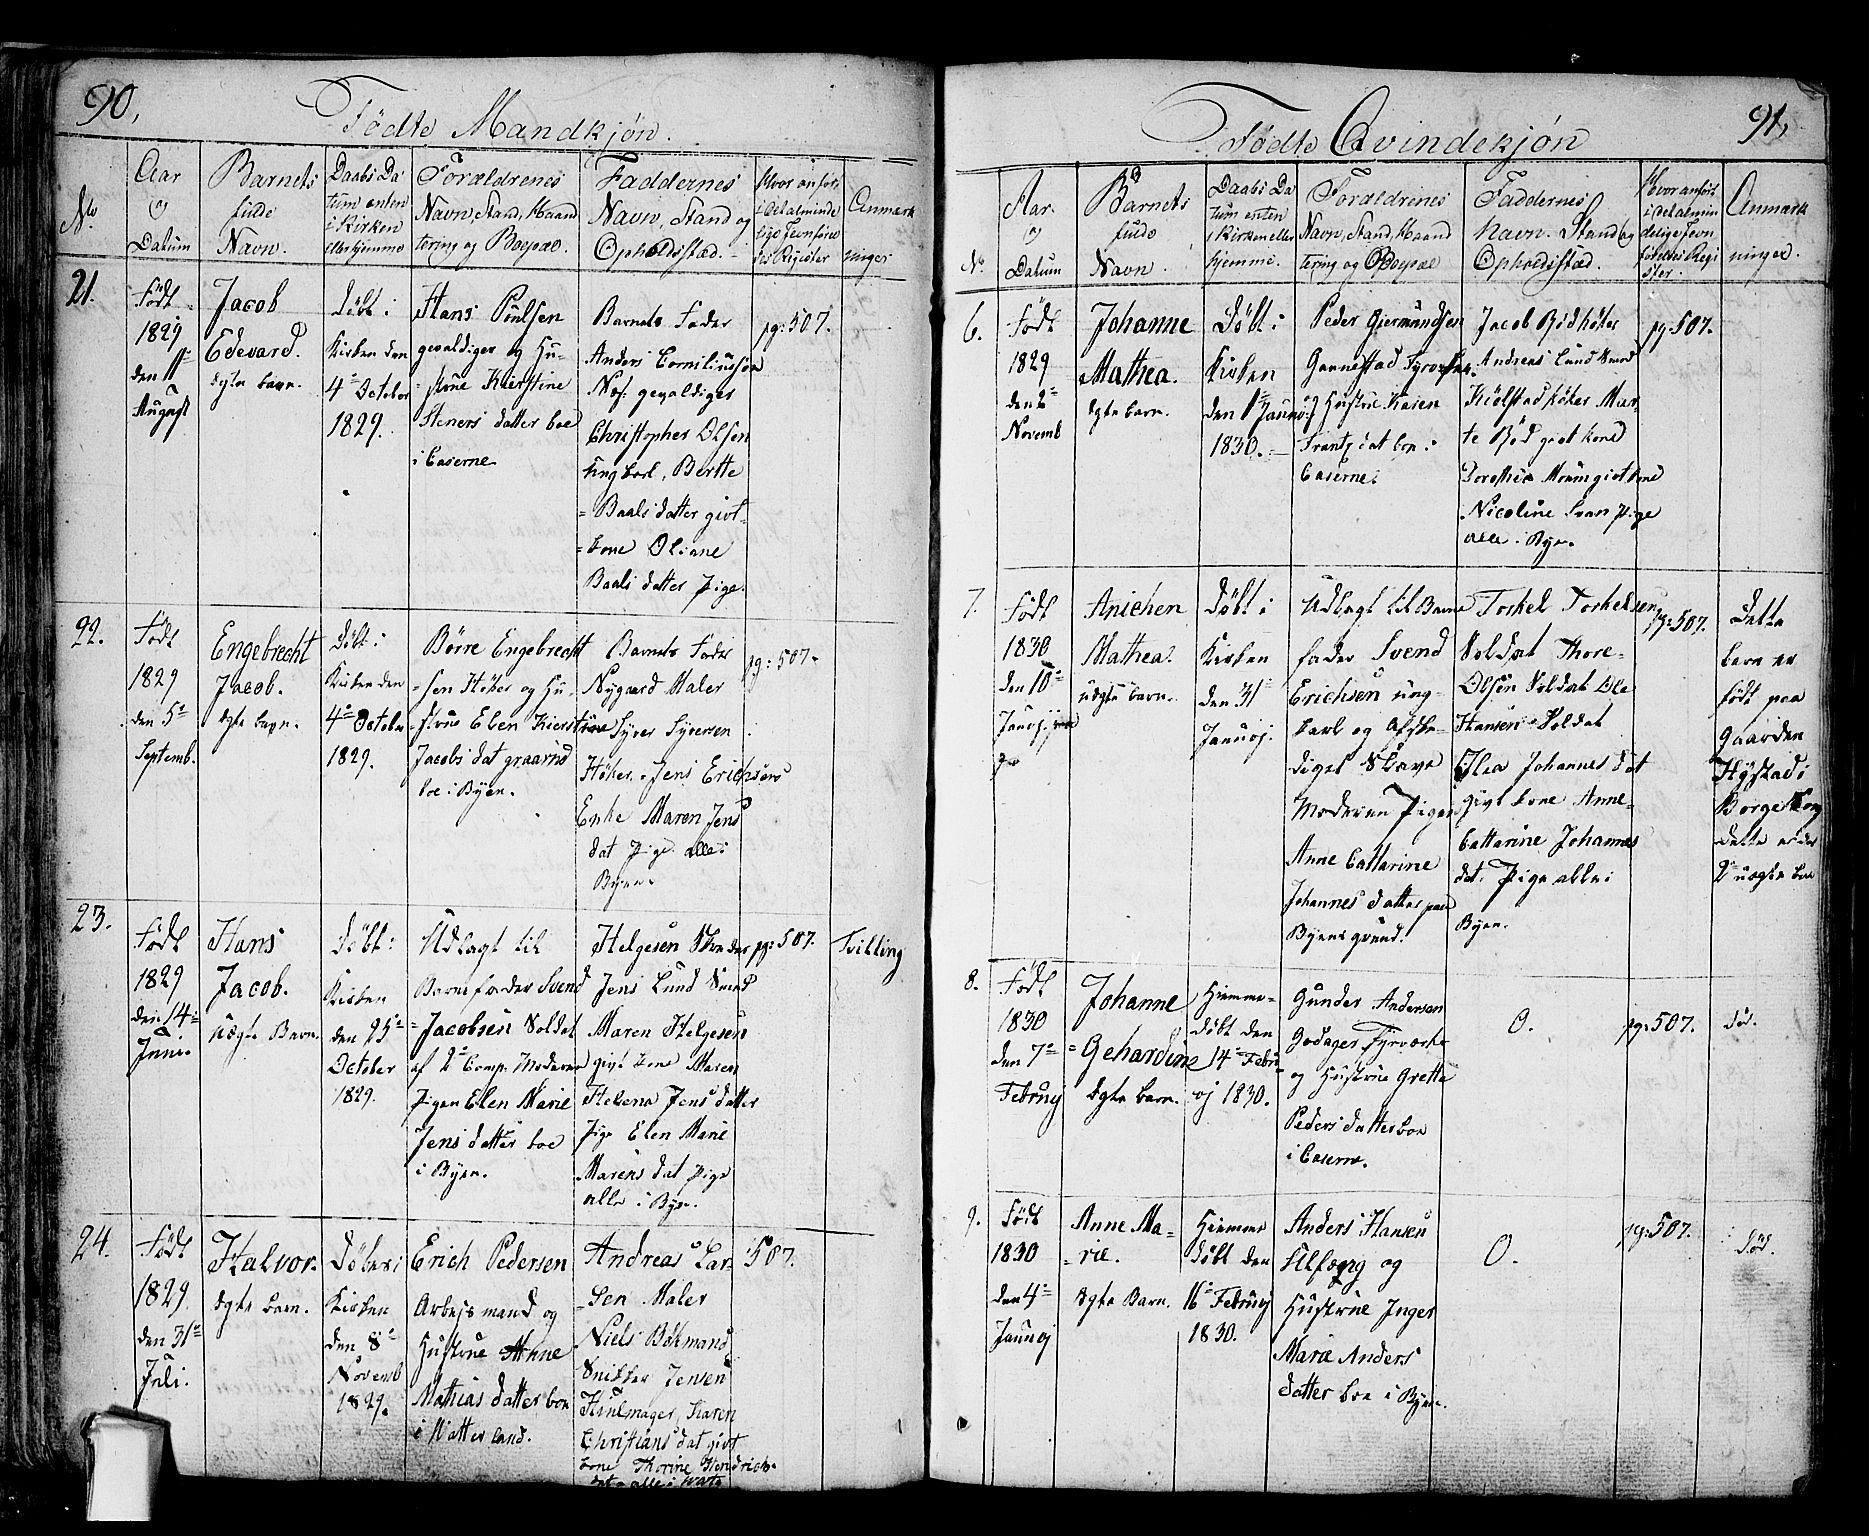 90,
Födte Mandkjön.
No.
Aar
og
Datum
Barnets
fulde
Navn.
Daabs Da
tum enten
i Kirken
eller hjemme
Forældrenes
Navn, Stand, Haand
tering og Boepæl.
Faddernes
Navn, Stand og
Opholdsstæd.
Hvor anført
i det alminde
lige Jevnføre
ses Register
Anmærk
ninger
21.
Födt
1829
den 11te
August
Jacob
Edevard.
ægte barn.
Döbt i
Kirken den
4de October
1829.
Hans Poulsen
gevaldiger og Hu-
strue Kierstine
Steners datter boe
i Caserne
Barnets Fader
Anders Cornliussen
gevaldiger
Christopher Olsen
Ungkarl, Berthe
Baals datter givt
kone Oliane
Baals datter Pige.
pg: 507.
22.
Födt
1829
den 5te
Septemb.
Engebrecht
Jacob.
ægte barn.
Döbt i
Kirken den
4de October
1829.
Börre Engebrecht
sen Höker og Hu-
strue Elen Kierstine
Jacobs dat
boe i Byen.
Barnets Fader
Nygaard Maler
Syver Syversen
Höker. Jens Erichsens
Enke Maren Jens
dat Pige alle i
Byen.
pg: 507.
23.
Födt
1829
den 14de
Juni.
Hans
Jacob.
uægte Barn.
Döbt i
Kirken
den 25de
October
1829.
Udlagt til
Barnefader Svend
Jacobsen Soldat
af 2de Comp. Moderen
Pigen Elen Marie
Jens datter boe
i Byen.
Helgesen
Jens Lund Smed
Maren Helgesen
givt kone Maren
Helene Jens datter
Pige Elen Marie
Marens dat Pige
alle i Byen.
pg: 507.
Tvilling
24.
Födt
1829.
den 31te
Juli.
Halvor.
ægte barn.
Döbt i
Kirken
den 8de
Novemb
1829.
Erich Pedersen
Arbejdsmand og
Hustrue Anne
Mathias datter boe
i Vatterland.
Andreas Lar-
sen Maler
Niels Bökmand
Snikker Jensen
Hiulmager, Karen
Christians dat givt
kone Thorine Hendrichs
507.
91,
Födte Qvindekjön
No.
Aar.
og
Datum
Barnets
fulde
Navn.
Daabs Da
tum enten
i Kirken eller
hjemme.
Forældrenes
Navn, Stand, Haand
tering og Boepæl
Faddernes
Navn. Stand og
Opholdsstæd.
Hvor anført
i det almin
delige Jevn
førelses Regi
ster.
Anmærk
ninger.
6.
Födt
1829
den 2den
Novemb
Johanne
Mathea.
ægte barn.
Döbt i
Kirken
den 1te Januarj
1830.
Peder Giermundsen
Gannestad
Hustrue Karen
Frantz dat boe i
Caserne.
Jacob Röd höker
Andreas Lund Smed
Kiölstad höker Mar-
te Röd givt kone
Dorothea Moum givt kone
Nicoline Svan Pige
alle i Byen.
pg: 507.
7.
Födt
1830
den 10de
Januarj
Anichen
Mathea.
uægte barn.
Döbt i
Kirken
den 31te
Januarj.
Udlagt til Barne
fader Svend
Erichsen ung-
karl og Afske-
diget Slave
Moderen Pigen
Anne Cattarine
Johannes datter paa
Byens grund.
Torkel Torkelsen
Soldat Thore
Olsen Soldat Ole
Hansen Soldat
Olea Johannes dat
givt kone Anne
Cattarine Johannes
dat. Pige alle i
Byen.
pg: 507.
Dette
barn er
födt paa
gaarden
Hystad i
Borge Sogn
dette er der
2det uægte barn
8.
Födt
1830
den 7de
Februarj
Johanne
Gehardine
ægte barn.
Hiemme-
döbt den
14de Febru-
arj 1830.
Gunder Andersen
Godager Fyrværker
og Hustrue Grette
Peders datter boe
i Caserne.
O.
pg: 507.
död.
9.
Födt
1830
den 4de
Januarj
Anne Ma-
rie.
ægte Barn.
Hiemme
döbt den
16de Februarj
1830.
Anders Hansen
Ulfseng og
Hustrue Inger
Marie Anders
datter boe i Byen.
O.
pg: 507.
död.